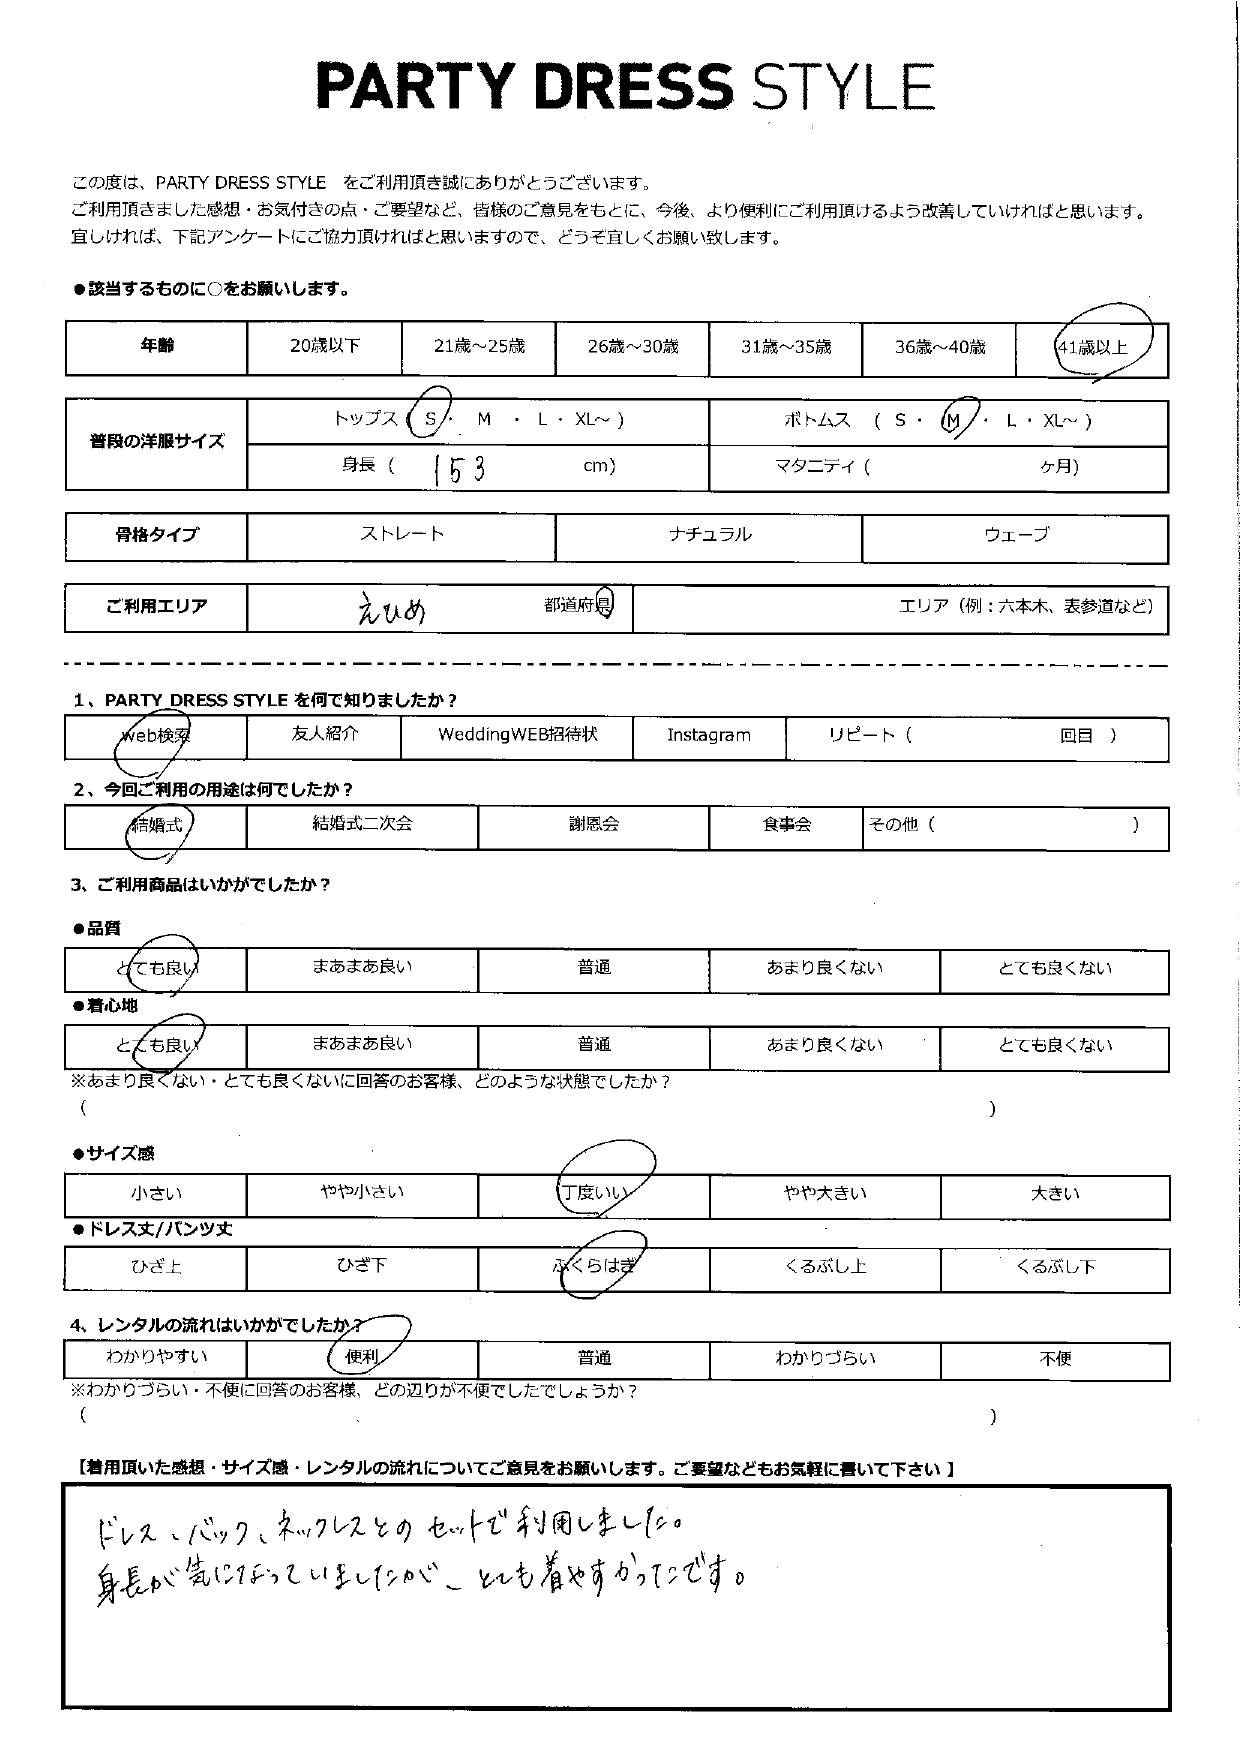 PARTY DRESS STYLE
この度は、PARTY DRESS STYLE をご利用頂き誠にありがとうございます。
ご利用頂きました感想・お気付きの点・ご要望など、皆様のご意見をもとに、今後、より便利にご利用頂けるよう改善していければと思います。
宜しければ、下記アンケートにご協力頂ければと思いますので、どうぞ宜しくお願い致します。
●該当するものに○をお願いします。
年齢 20歳以下 21歳～25歳 26歳～30歳 31歳～35歳 36歳～40歳 41歳以上
普段の洋服サイズ
トップス ( S ・ M ・ L ・ XL～ ) ボトムス ( S ・ M ・ L ・ XL～ )
身長 ( 153 cm) マタニティ ( ケ月)
骨格タイプ ストレート ナチュラル ウェーブ
ご利用エリア えひめ 都道府県 エリア（例：六本木、表参道など）
1、PARTY DRESS STYLE を何で知りましたか？
web検索 友人紹介 WeddingWEB招待状 Instagram リピート ( 回目 )
2、今回ご利用の用途は何でしたか？
結婚式 結婚式二次会 謝恩会 食事会 その他 ( )
3、ご利用商品はいかがでしたか？
●品質
とても良い まあまあ良い 普通 あまり良くない とても良くない
●着心地
とても良い まあまあ良い 普通 あまり良くない とても良くない
※あまり良くない・とても良くないに回答のお客様、どのような状態でしたか？
( )
●サイズ感
小さい やや小さい 丁度いい やや大きい 大きい
●ドレス丈/パンツ丈
ひざ上 ひざ下 ふくらはぎ くるぶし上 くるぶし下
4、レンタルの流れはいかがでしたか？
わかりやすい 便利 普通 わかりづらい 不便
※わかりづらい・不便に回答のお客様、どの辺りが不便でしたでしょうか？
( )
【着用頂いた感想・サイズ感・レンタルの流れについてご意見をお願いします。ご要望などもお気軽に書いて下さい 】
ドレス、バック、ネックレスとのセットで利用しました。
身長が気になっていましたが、とても着やすかったです。